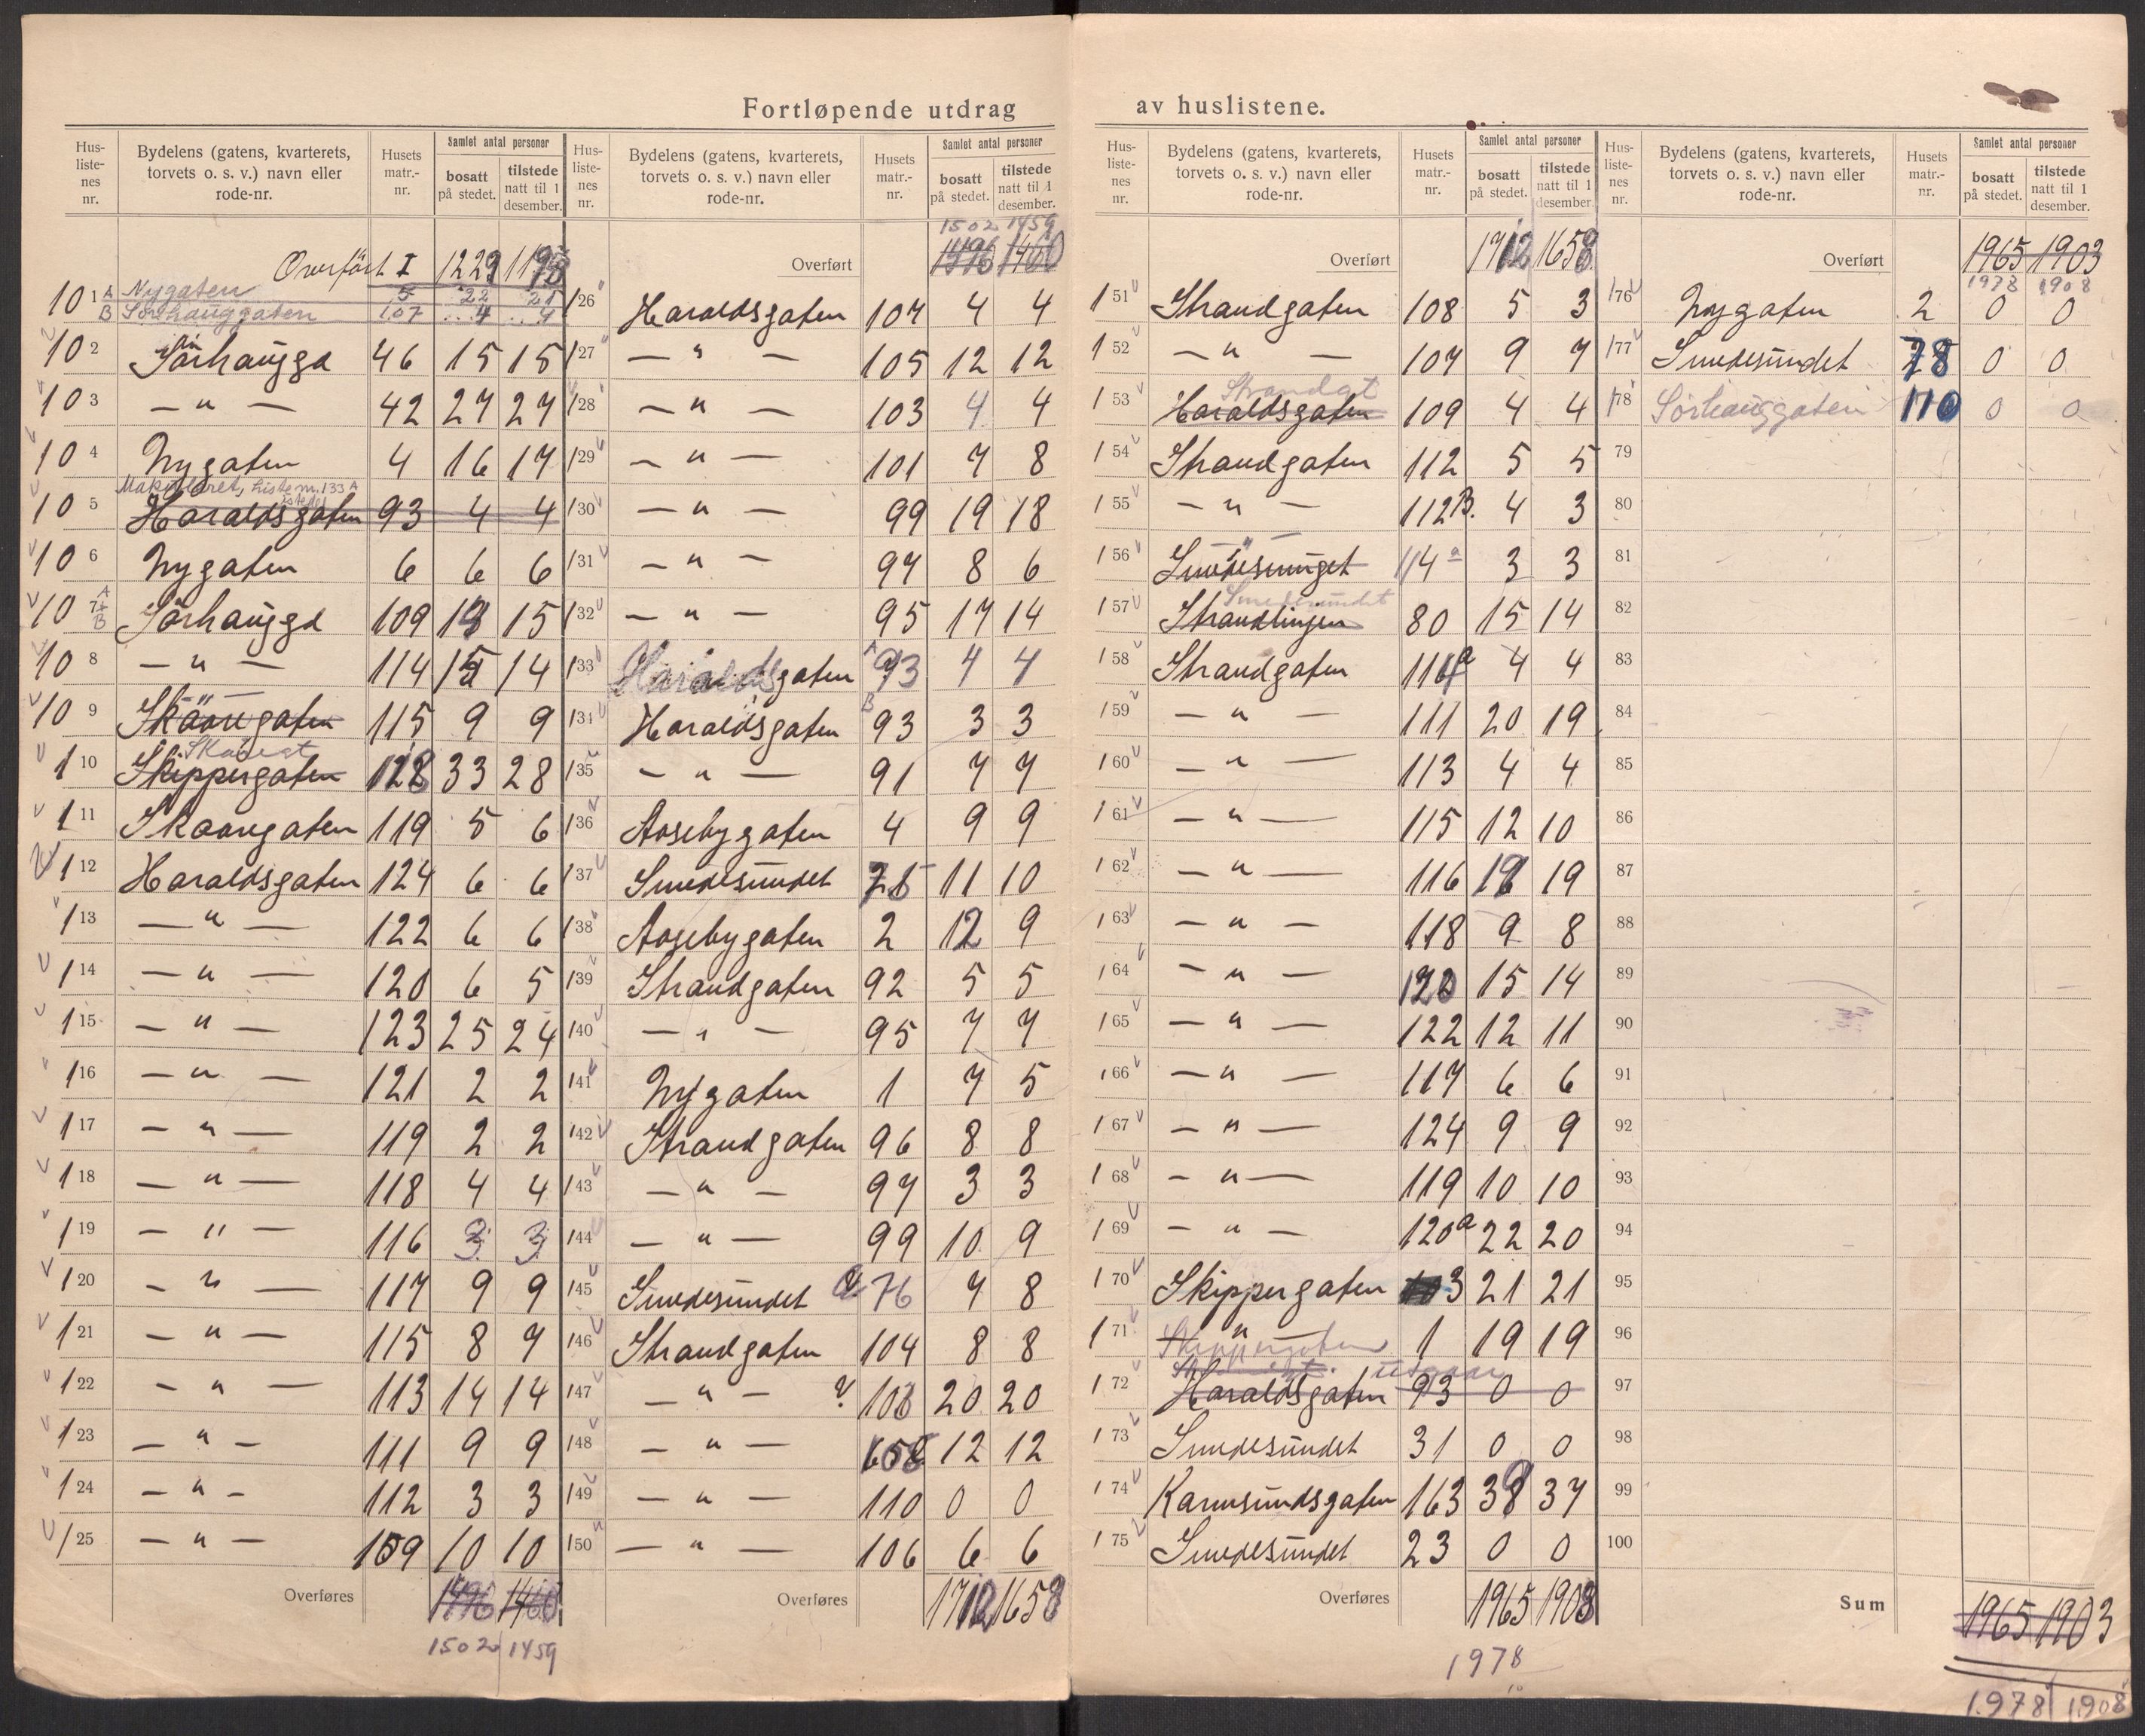 Fortløpende utdrag av huslistene.
Hus-liste-nes nr. Bydelens (gatens, kvarterets, torvets o. s. v.) navn eller rode-nr. Husets matr.-nr. Samlet antal personer bosatt på stedet. tilstede natt til 1 desember.
Overført I 1229 1198
101 A Nygaten 5 22 21
B Sørhauggaten 107 4 4
102 Sørhaugga 46 15 15
103 — " — 42 27 27
104 Nygaten 4 16 17
Makuleret, liste nr. 133 A istedet
105 Haraldsgaten 93 4 4
106 Nygaten 6 6 6
107 A B Sørhauggd 109 13 15
108 — " — 114 15 14
109 Skaaregaten — " — 115 9 9
Skåregt
110 Skippergaten 128 33 28
111 Skaaregaten 119 5 6
112 Haraldsgaten 124 6 6
113 — " — 122 6 6
114 — " — 120 6 5
115 — " — 123 25 24
116 — " — 121 2 2
117 — " — 119 2 2
118 — " — 118 4 4
119 — " — 116 3 3
120 — " — 117 9 9
121 — " — 115 8 7
122 — " — 113 14 14
123 — " — 111 9 9
124 — " — 112 3 3
125 — " — 109 10 10
Overføres 1496 1460
1502 1459
Hus-liste-nes nr. Bydelens (gatens, kvarterets, torvets o. s. v.) navn eller rode-nr. Husets matr.-nr. Samlet antal personer bosatt på stedet. tilstede natt til 1 desember.
1502 1459
Overført 1496 1460
126 Haraldsgaten 107 4 4
127 — " — 105 12 12
128 — " — 103 4 4
129 — " — 101 7 8
130 — " — 99 19 18
131 — " — 97 8 6
132 — " — 95 17 14
133 Haraldsgaten A 93 4 4
134 Haraldsgaten B 93 3 3
135 — " — 91 7 7
136 Aasebygaten 4 9 9
137 Smedesundet 75 11 10
138 Aasebygaten 2 12 9
139 Strandgaten 92 5 5
140 — " — 95 7 7
141 Nygaten 1 7 5
142 Strandgaten 96 8 8
143 — " — 97 3 3
144 — " — 99 10 9
145 Smedesundet 76 9 8
146 Strandgaten 104 8 8
147 — " — 103 20 20
148 — " — 12 12
149 — " — 110 0 0
150 — " — 106 6 6
Overføres 1712 1658
Hus-liste-nes nr. Bydelens (gatens, kvarterets, torvets o. s. v.) navn eller rode-nr. Husets matr.-nr. Samlet antal personer bosatt på stedet. tilstede natt til 1 desember.
Overført 1712 1658
151 Strandgaten 108 5 3
152 — " — 107 9 7
Strandgt
153 Haraldsgaten 109 4 4
154 Strandgaten 112 5 5
155 — " — 112B. 4 3
156 — " — 114a 3 3
Smedesundet
157 Strandlinjen 80 15 14
158 Strandgaten 114 a 4 4
159 — " — 111 20 19
160 — " — 113 4 4
161 — " — 115 12 10
162 — " — 116 18 19
163 — " — 118 9 8
164 — " — 120 15 14
165 — " — 122 12 11
166 — " — 117 6 6
167 — " — 124 9 9
168 — " — 119 10 10
169 — " — 120a 22 20
170 Skippergaten 3 21 21
171 — " — Skippergaten 1 19 19
utgaar
172 Haraldsgaten 93 0 0
173 Smedesundet 31 0 0
174 Karmsundsgaten 163 38 37
175 Smedesundet 23 0 0
Overføres 1965 1908
1978
Hus-liste-nes nr. Bydelens (gatens, kvarterets, torvets o. s. v.) navn eller rode-nr. Husets matr.-nr. Samlet antal personer bosatt på stedet. tilstede natt til 1 desember.
Overført 1965 1903
1978 1908
176 Nygaten 2 0 0
177 Smedesundet 78 0 0
178 Sørhauggaten 110 0 0
79
80
81
82
83
84
85
86
87
88
89
90
91
92
93
94
95
96
97
98
99
100
Sum 1965 1903
1978 1908